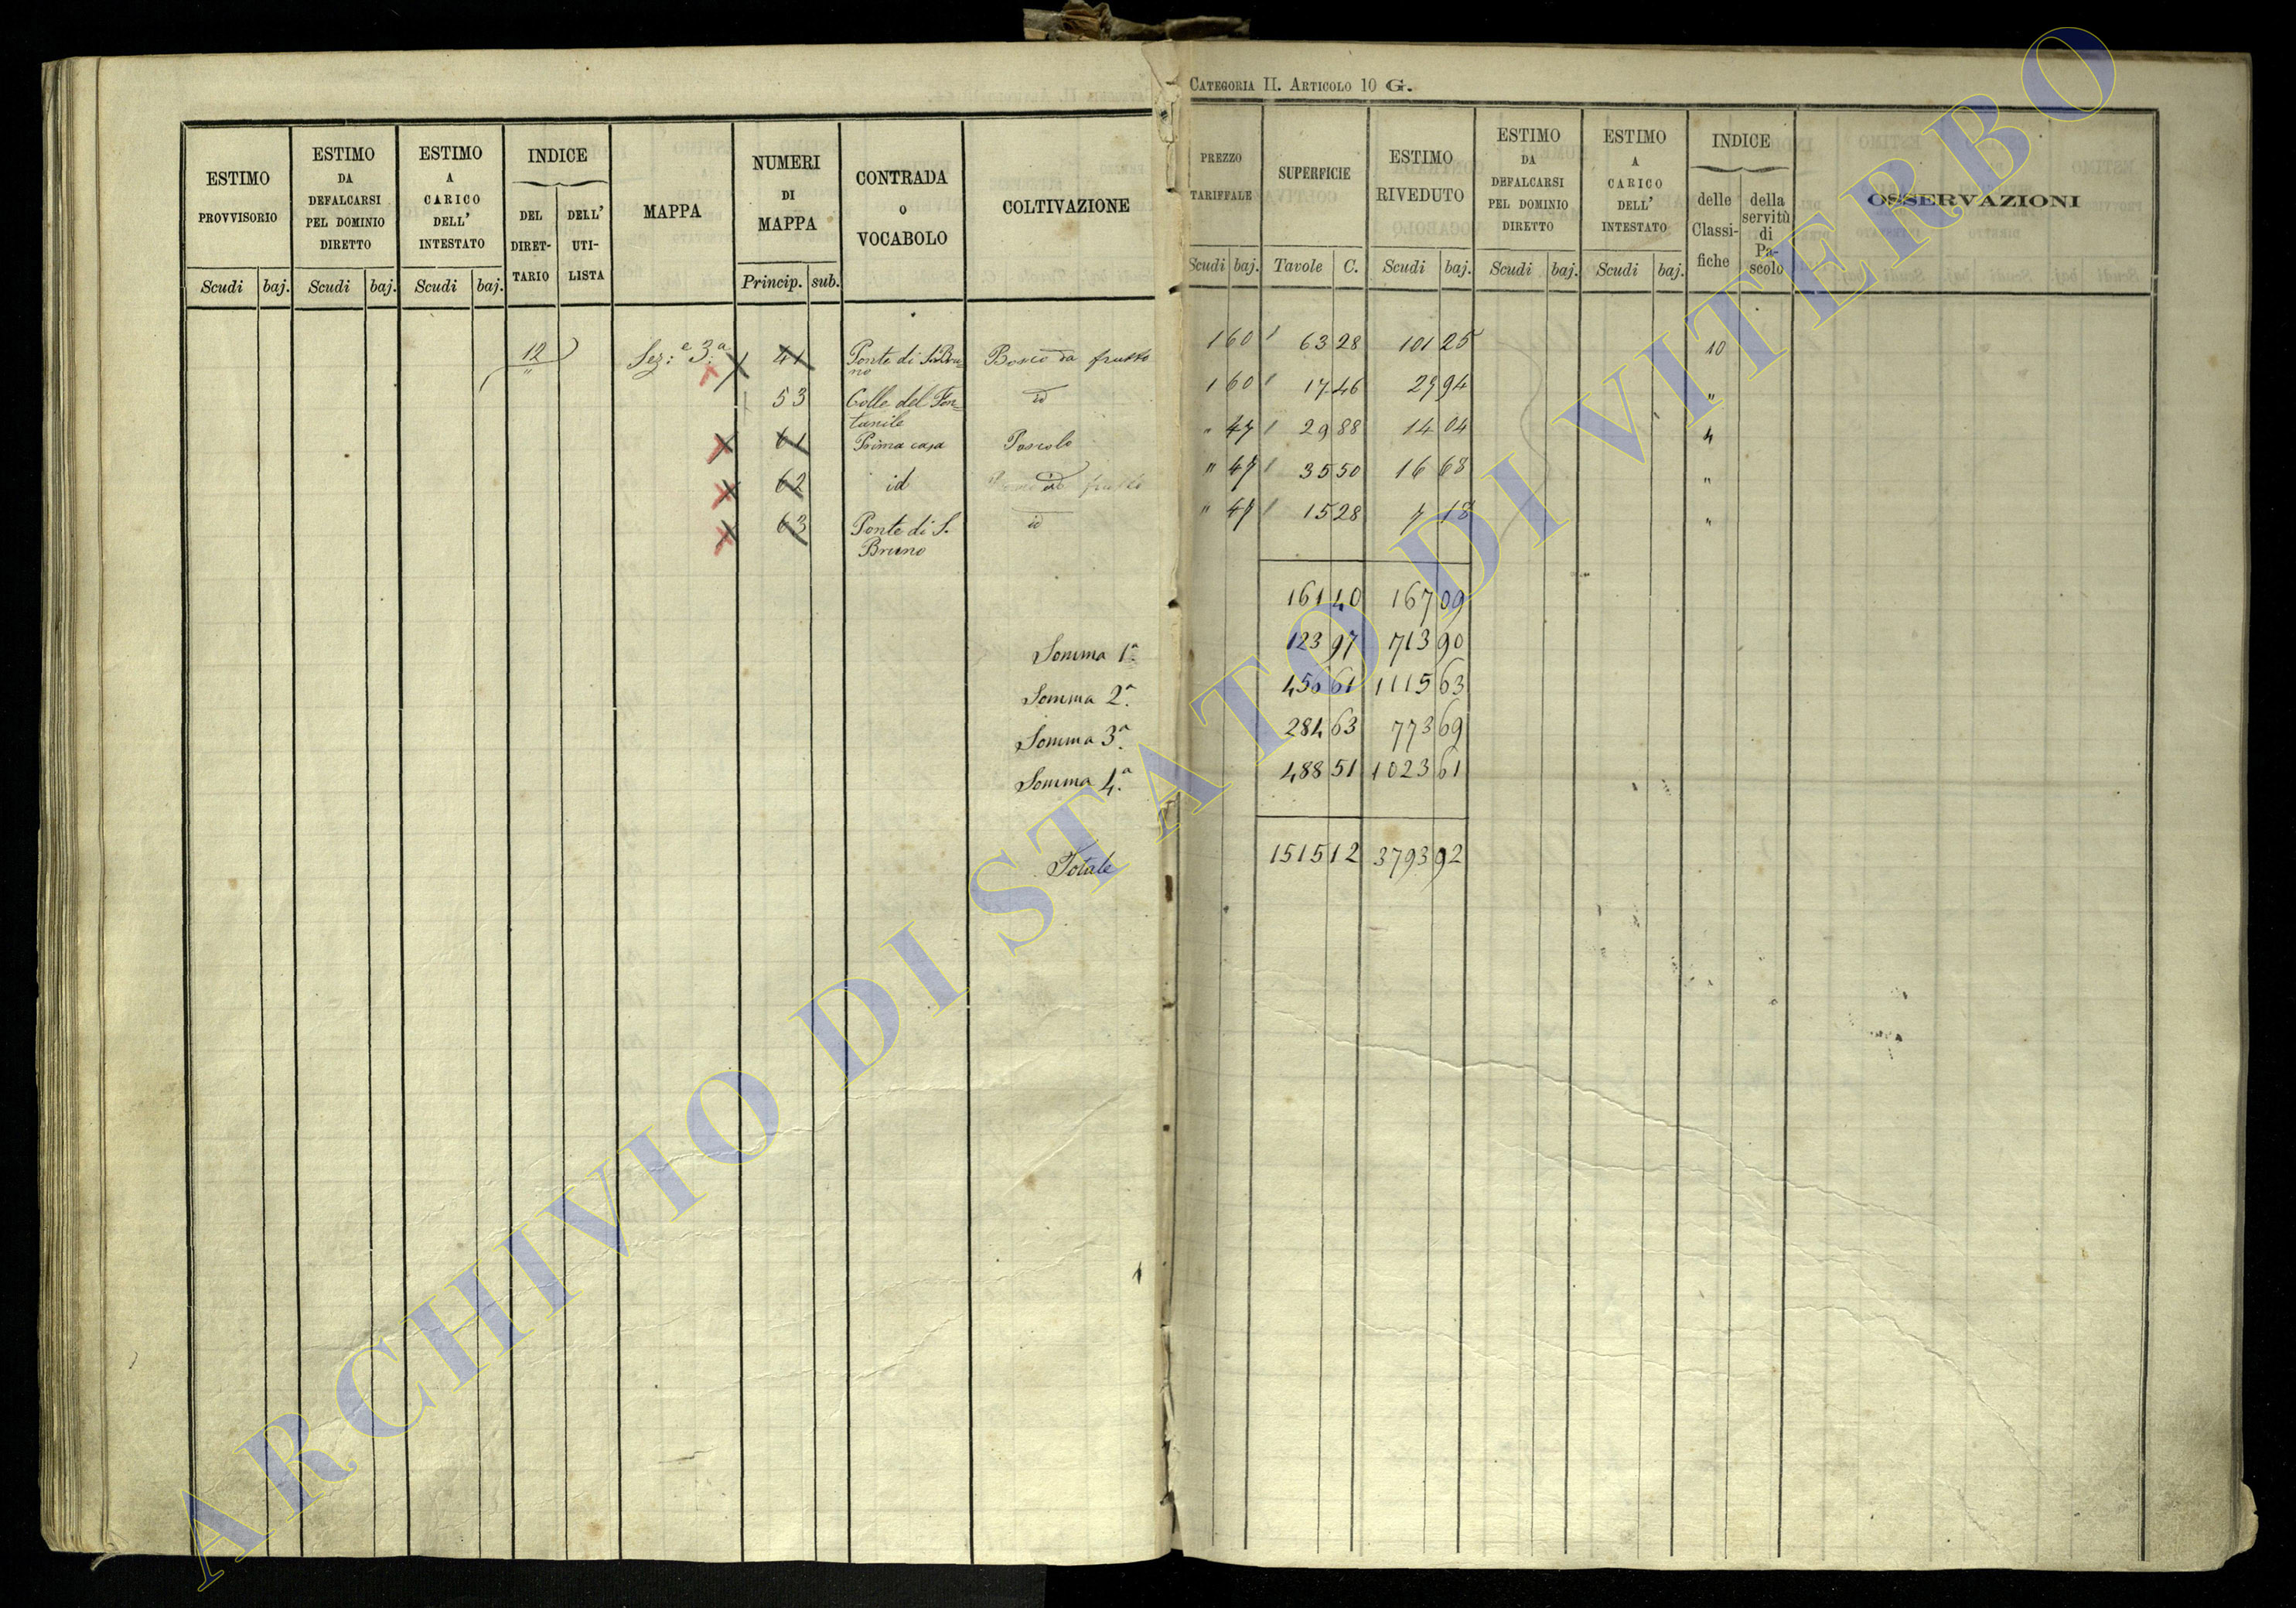 CATEGORIA II. ARTICOLO 10 G.
ESTIMO PROVVISORIO
Scudi baj.
ESTIMO DA DEFALCARSI PEL DOMINIO DIRETTO
Scudi baj.
ESTIMO A CARICO DELL' INTESTATO
Scudi baj.
INDICE
DEL DIRET-TARIO
DELL' UTI-LISTA
MAPPA
NUMERI DI MAPPA
Princip. sub.
CONTRADA O VOCABOLO
COLTIVAZIONE
PREZZO TARIFFALE
Scudi baj.
SUPERFICIE
Tavole C.
ESTIMO RIVEDUTO
Scudi baj.
ESTIMO DA DEFALCARSI PEL DOMINIO DIRETTO
Scudi baj.
ESTIMO A CARICO DELL' INTESTATO
Scudi baj.
INDICE
delle Classi-fiche
della servitù di Pa-scolo
OSSERVAZIONI
12 Sez:e 3:a 41 Ponte di S. Bru= Bosco da frutto 1 60 63 28 101 25 10
no
53 Colle del Fon= id 1 60 17 46 27 94 "
tanile
61 Prima casa Pascolo " 47 29 88 14 04
62 id id " 47 35 50 16 68 "
63 Ponte di S. id " 47 15 28 7 18 "
Bruno
161 40 167 09
Somma 1a. 123 97 713 90
Somma 2a. 456 61 1115 63
Somma 3a. 284 63 773 69
Somma 4a. 488 51 1023 61
Totale 1515 12 3793 92
ARCHIVIO DI STATO DI VITERBO